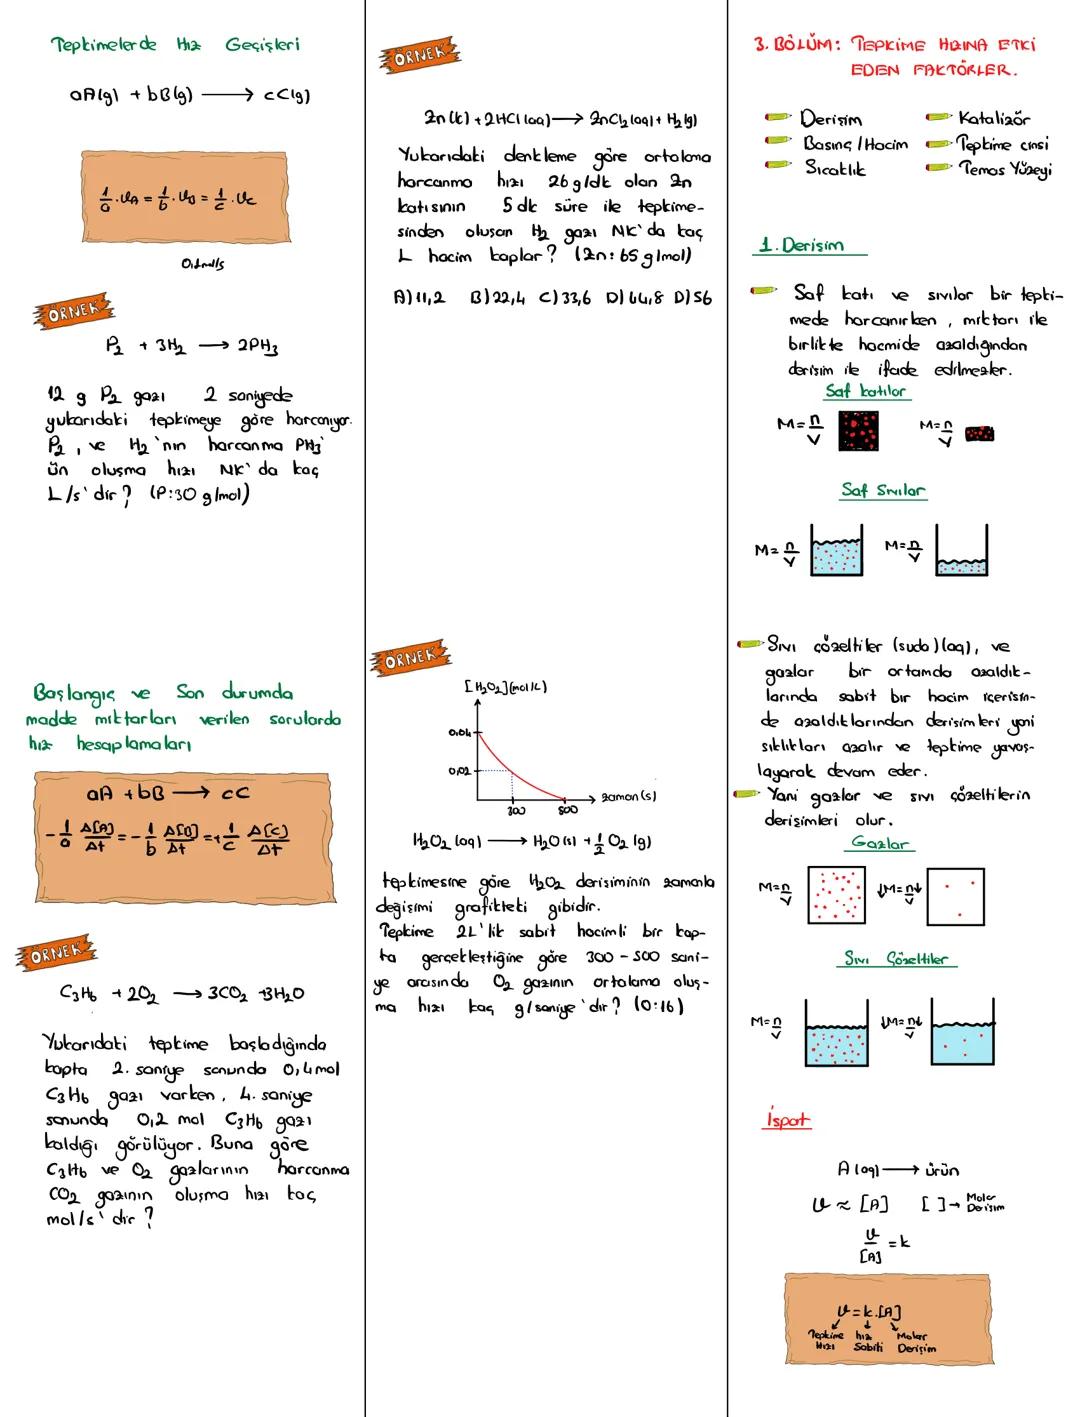 Tepkimelerde Hız Geçişleri
aA(g) + bB(g) → cC(g)
1/a . υA = 1/b . υB = 1/c . υC
0,1mol/s
ÖRNEK
P2 + 3H2 → 2PH3
12 g P2 gazı 2 saniyede
yukarıdaki tepkimeye göre harcanıyor.
P2, ve H2'nın harcanma PH3'
ün oluşma hızı NK'da kaç
L/s'dir? (P:30 g/mol)
Başlangıç ve Son durumda
madde miktarları verilen sorularda
hız hesaplamaları
aA + bB → cC
- 1/a Δ[A]/Δt = - 1/b Δ[B]/Δt = + 1/c Δ[C]/Δt
ÖRNEK
C3H6 + 2O2 → 3CO2 + 3H2O
Yukarıdaki tepkime başladığında
kapta 2. saniye sonunda 0,4 mol
C3H6 gazı varken, 4. saniye
sonunda 0,2 mol C3H6 gazı
kaldığı görülüyor. Buna göre
C3H6 ve O2 gazlarının harcanma
CO2 gazının oluşma hızı kaç
mol/s'dir?
ÖRNEK
Zn(k) + 2HCl(aq) → ZnCl2(aq) + H2(g)
Yukarıdaki denkleme göre ortalama
harcanma hızı 26g/dk olan Zn
katısının 5 dk süre ile tepkime-
sinden oluşan H2 gazı NK'da kaç
L hacim kaplar? (Zn: 65 g/mol)
A) 11,2 B) 22,4 C) 33,6 D) 44,8 D) 56
ÖRNEK
[H2O2](mol/L)
0,04
0,02
300 500 zaman (s)
H2O2 (aq) → H2O(s) + 1/2 O2 (g)
tepkimesine göre H2O2 derişiminin zamanla
değişimi grafikteki gibidir.
Tepkime 2L'lik sabit hacimli bir kap-
ta gerçekleştiğine göre 300 - 500 sani-
ye arasında O2 gazının ortalama oluş-
ma hızı kaç g/saniye'dir? (O:16)
3. BÖLÜM: TEPKİME HIZINA ETKİ
EDEN FAKTÖRLER.
Derişim Katalizör
Basınç / Hacim Tepkime cinsi
Sıcaklık Temas Yüzeyi
1. Derişim
Saf katı ve sıvılar bir tepki-
mede harcanırken, miktarı ile
birlikte hacmide azaldığından
derişim ile ifade edilmezler.
Saf katılar
M=n/V M=n/V
Saf Sıvılar
M=n/V M=n/V
Sıvı çözeltiler (suda)(aq), ve
gazlar bir ortamda azaldık-
larında sabit bir hacim içerisin-
de azaldıklarından derişimleri yani
sıklıkları azalır ve tepkime yavaş-
layarak devam eder.
Yani gazlar ve sıvı çözeltilerin
derişimleri olur.
Gazlar
M=n/V ↓M=n↓/V
Sıvı Çözeltiler
M=n/V ↓M=n↓/V
İspat
A(aq) → ürün
υ ≈ [A] [ ]→ Molar Derişim
υ/[A] = k
υ = k.[A]
Tepkime hız Molar
Hızı Sabiti Derişim